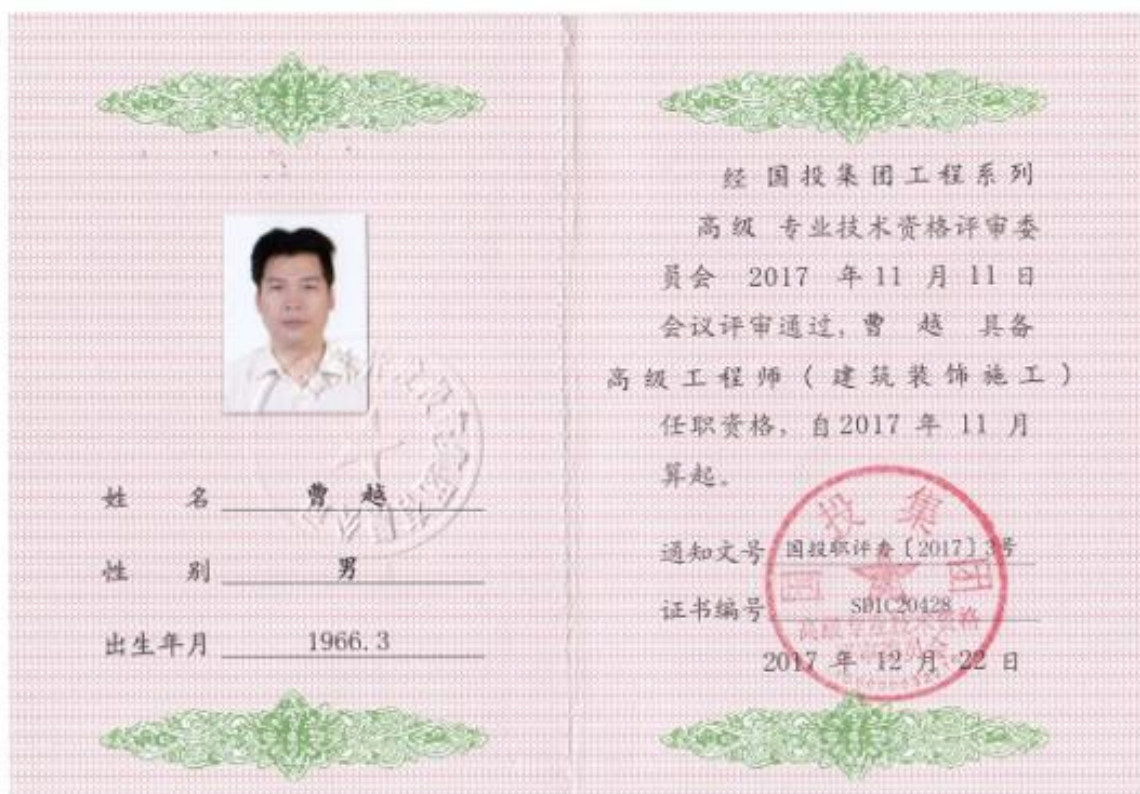 姓 名 曹 越
性 别 男
出生年月 1966.3
经 国投集团工程系列
高级 专业技术资格评审委
员会 2017 年 11 月 11 日
会议评审通过,曹 越 具备
高级工程师(建筑装饰施工)
任职资格,自2017 年 11 月
算起。
通知文号 国投职评办〔2017〕3号
证书编号 SDIC20428
2017 年 12 月 22 日
国投集团
高级专业技术资格